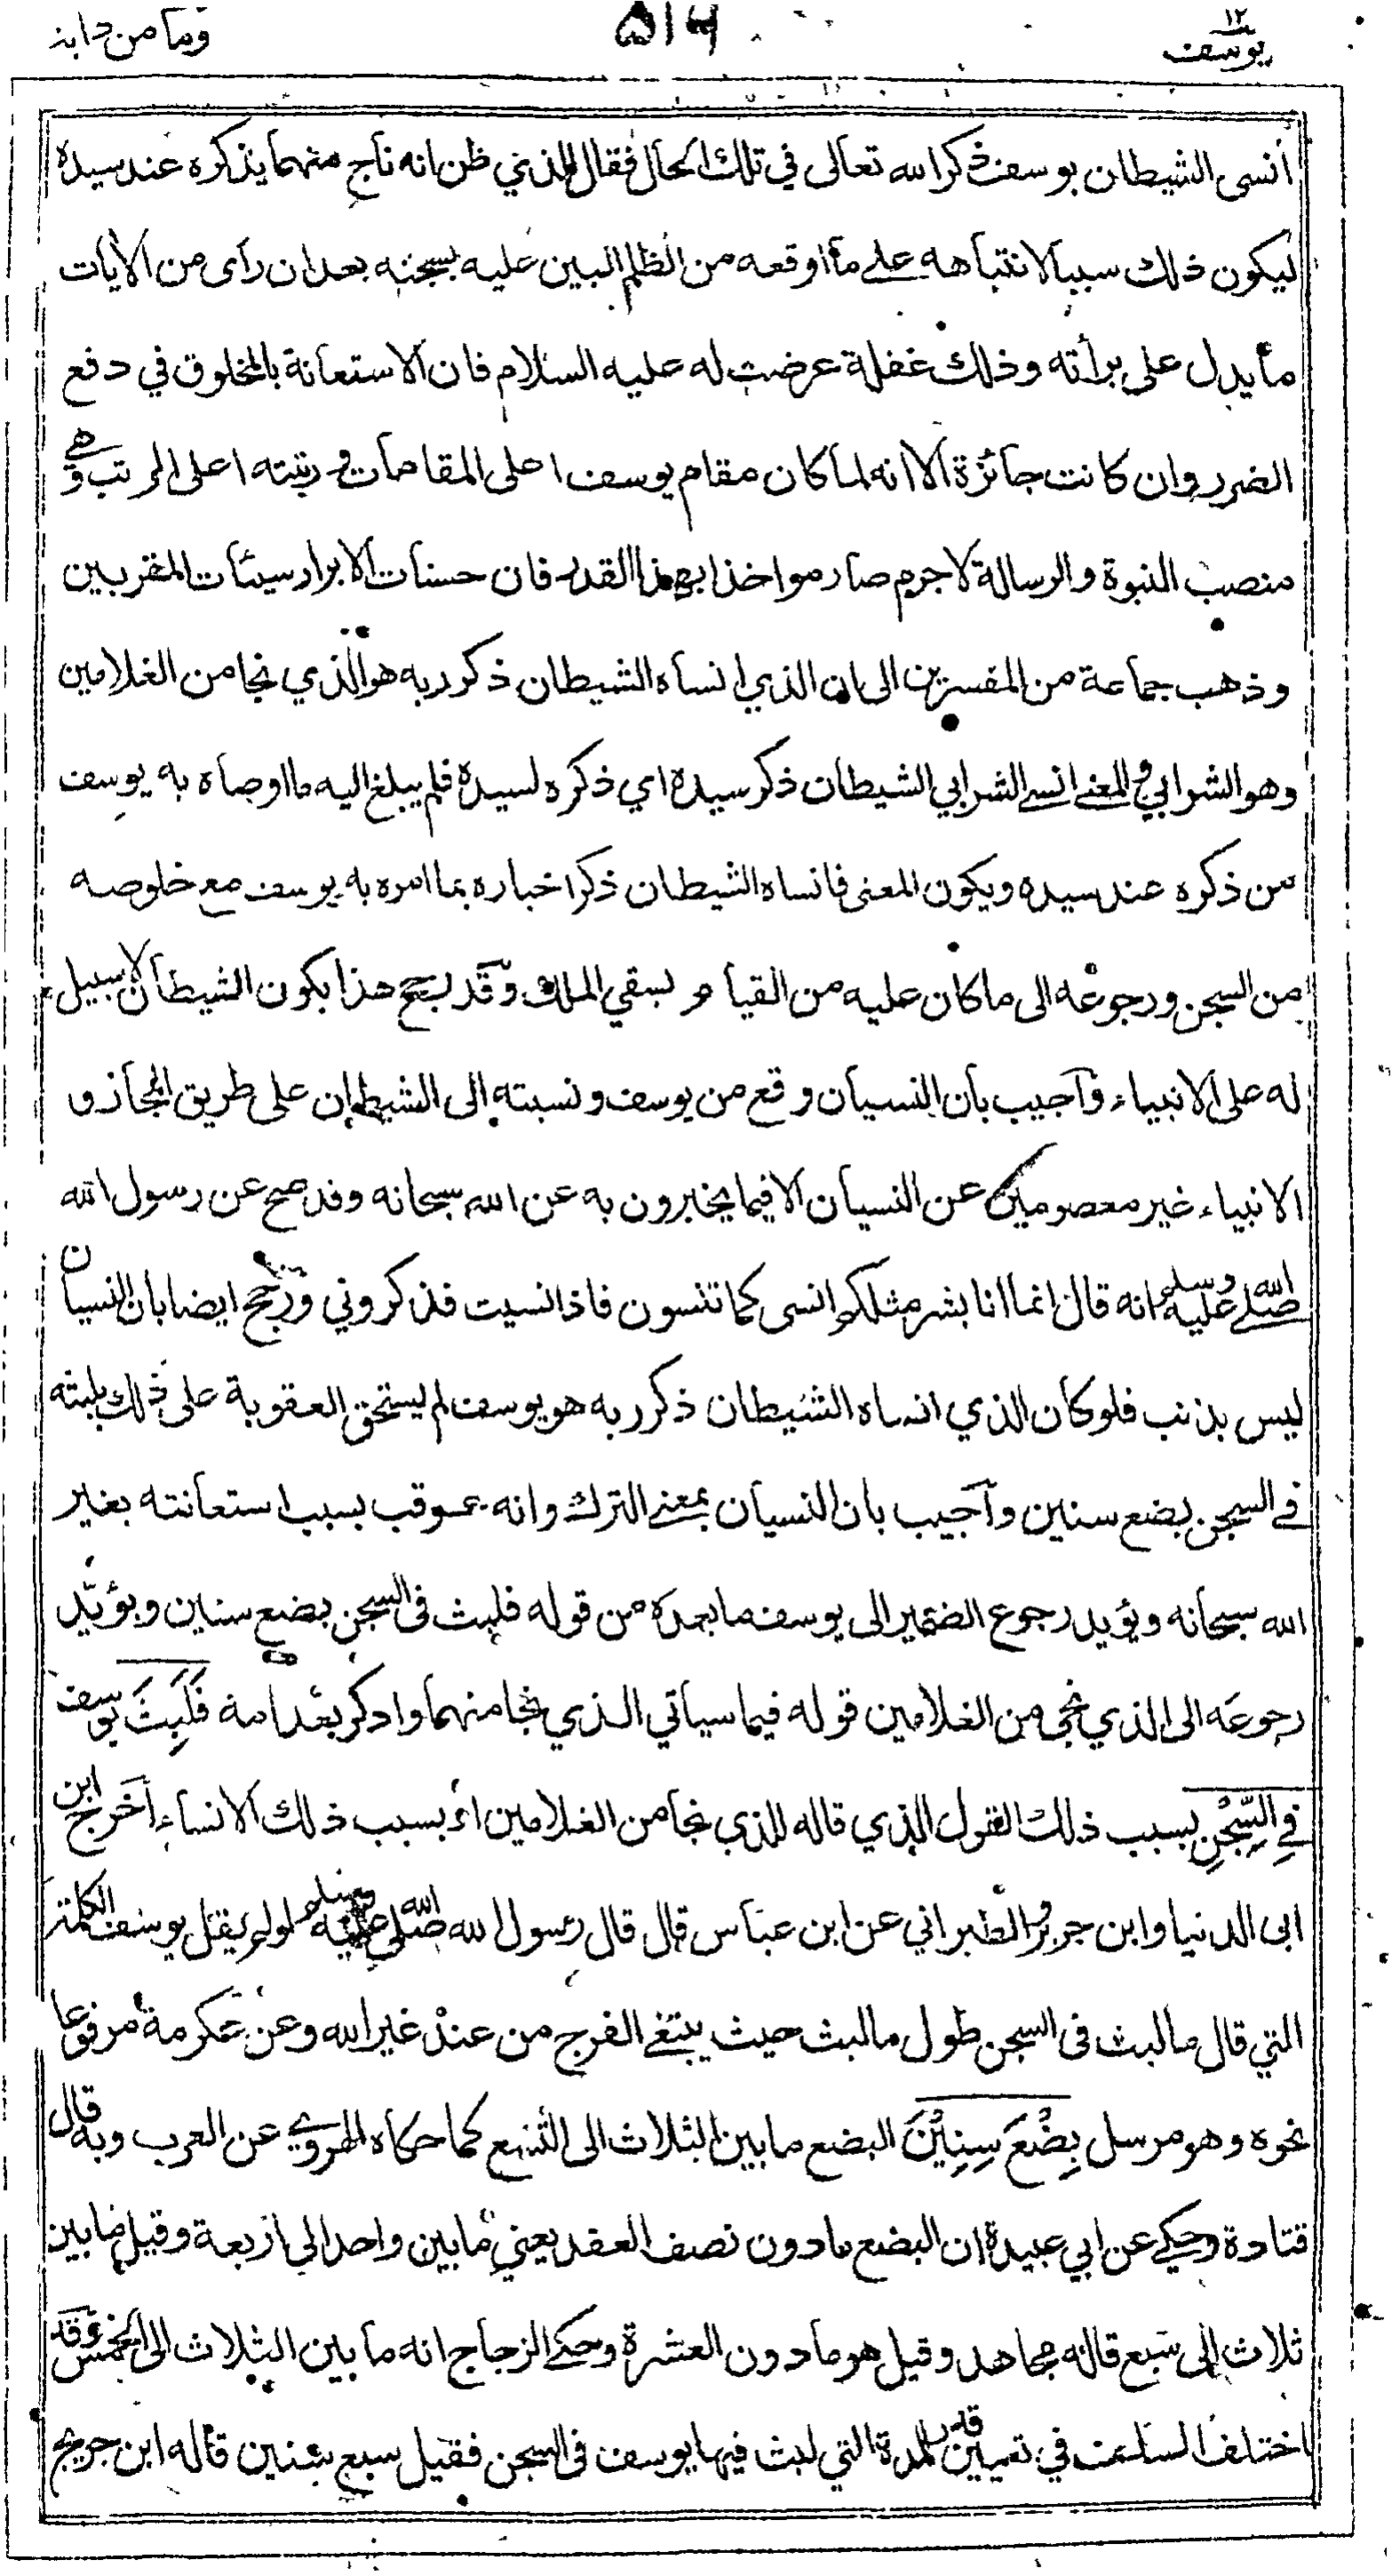 يوسف ١٢
٥١٦
وما من دابة
أنسى الشيطان يوسف ذكر الله تعالى في تلك الحال فقال للذي ظن انه ناج منهما يذكره عند سيده
ليكون ذلك سببا لانتباهه على ما اوقعه من الظلم البين عليه بسجنه بعد ان رأى من الآيات
ما يدل على برأته وذلك غفلة عرضت له عليه السلام فان الاستعانة بالمخلوق في دفع
الضرر وان كانت جائزة الا انه لما كان مقام يوسف اعلى المقامات ورتبته اعلى المرتب وهي
منصب النبوة والرسالة لا جرم صار مواخذا بهذا القدر فان حسنات الابرار سيئات المقربين
وذهب جماعة من المفسرين الى ان الذي انساه الشيطان ذكر ربه هو الذي نجا من الغلامين
وهو الشرابي والمعنى انسى الشرابي الشيطان ذكر سيده اي ذكره لسيده فلم يبلغ اليه ما اوصاه به يوسف
من ذكره عند سيده ويكون المعنى فانساه الشيطان ذكر اخباره بما امره به يوسف مع خلوصه
من السجن ورجوعه الى ما كان عليه من القيام لسقي الملك وقد رجح هذا بكون الشيطان لا سبيل
له على الانبياء وآجيب بأن النسيان وقع من يوسف ونسبته الى الشيطان على طريق المجاز و
الانبياء غير معصومين عن النسيان الا فيما يخبرون به عن الله سبحانه وقد صح عن رسول الله
صلى الله عليه وسلم انه قال انما انا بشر مثلكم انسى كما تنسون فاذا نسيت فذكروني ورجح ايضا بان النسيان
ليس بذنب فلو كان الذي انساه الشيطان ذكر ربه هو يوسف لم يستحق العقوبة على ذلك بلبثه
في السجن بضع سنين وآجيب بان النسيان بمعنى الترك وانه عوقب بسبب استعانته بغير
الله سبحانه ويؤيد رجوع الضمير الى يوسف ما بعده من قوله فلبث في السجن بضع سنين ويؤيد
رجوعه الى الذي نجى من الغلامين قوله فيما سياتي الذي نجا منهما وادكر بعد امة فَلَبِثَ يوسف
فِي السِّجْنِ بسبب ذلك القول الذي قاله للذي نجا من الغلامين او بسبب ذلك الانساء أخرج ابن
ابى الدنيا وابن جرير والطبراني عن ابن عباس قال قال رسول الله صلى الله عليه وسلم لو لم يقل يوسف الكلمة
التي قال ما لبث فى السجن طول ما لبث حيث يبتغي الفرج من عند غير الله وعن عكرمة مرفوعا
نحوه وهو مرسل بِضْعَ سِنِيْنَ البضع ما بين الثلاث الى التسع كما حكاه الهروي عن العرب وبه قال
قتادة وحكي عن ابي عبيدة ان البضع ما دون نصف العقد يعني ما بين واحد الى اربعة وقيل ما بين
ثلاث الى سبع قاله مجاهد وقيل هو ما دون العشرة وحكى الزجاج انه ما بين الثلاث الى الخمس وقد
اختلف السلف في تعيين قدر المدة التي لبث فيها يوسف في السجن فقيل سبع سنين قاله ابن جريج